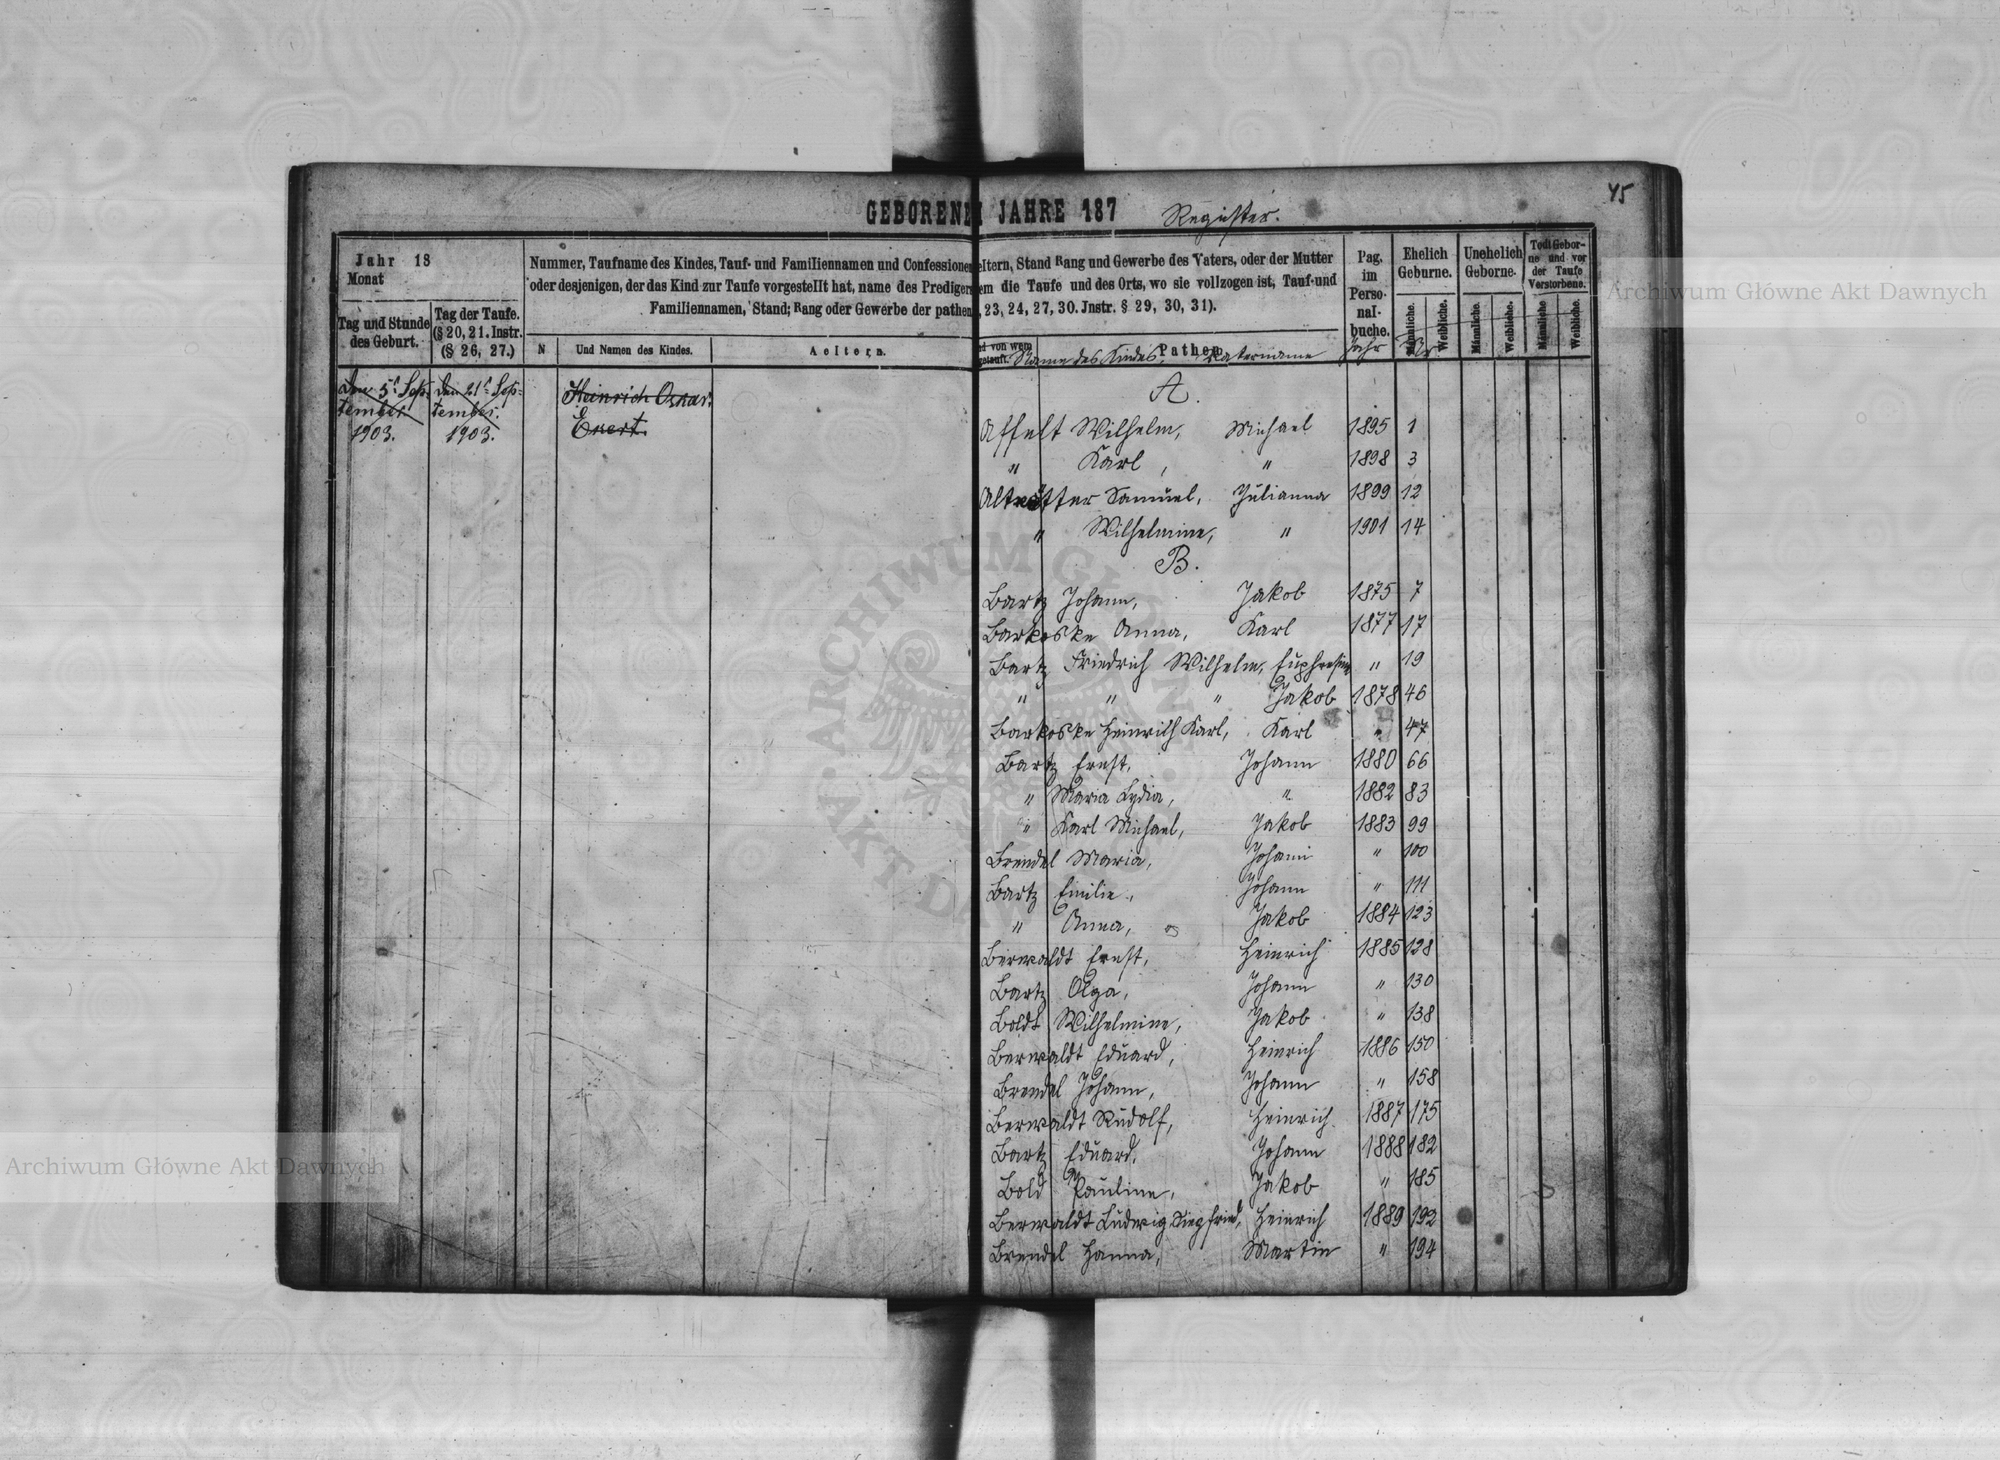 45
GEBORENE
JAHRE 187 Register.
Jahr 18
Monat
Tag und Stunde des Geburt.
Tag der Taufe. (§ 20, 21. Instr. (§ 26, 27.)
Nummer, Taufname des Kindes, Tauf- und Familiennamen und Confessionen
oder desjenigen, der das Kind zur Taufe vorgestellt hat, name des Predigers
Familiennamen, Stand; Rang oder Gewerbe der pathen
N
Und Namen des Kindes.
Aeltern.
eltern, Stand Rang und Gewerbe des Vaters, oder der Mutter
em die Taufe und des Orts, wo sie vollzogen ist, Tauf-und
, 23, 24, 27, 30. Instr. § 29, 30, 31).
d von wem getauft.
Name des Kindes
Pathen
Vatername
Pag. im Perso-nal-buche.
Jahr
Ehelich Geburne.
Männliche.
Weibliche.
Nr
Unehelich Geborne.
Männliche.
Weibliche.
Todt Gebor-ne und vor der Taufe Verstorbene.
Männliche
Weibliche.
Den 5t Sep-
tember
1903.
Den 21t Sep-
tember.
1903.
Heinrich Oskar.
Ekert.
A.
Affelt Wilhelm, Michael 1895 1
" Karl, " 1898 3
Samuel, Julianna 1899 12
" Wilhelmine, " 1901 14
B.
Bartz Johann, Jakob 1875 7
Barkoske Anna, Karl 1877 17
Bartz Friedrich Wilhelm, " 19
" " " Jakob 1878 46
Barkoske Heinrich Karl, Karl " 47
Bartz Ernst, Johann 1880 66
" Maria Lydia, " 1882 83
" Karl Michael, Jakob 1883 99
Brendel Maria, Johann " 100
Bartz Emilie, Johann " 111
" Anna, Jakob 1884 123
Berwaldt Ernst, Heinrich 1885 128
Bartz Olga, Johann " 130
Boldt Wilhelmine, Jakob " 138
Berwaldt Eduard, Heinrich 1886 150
Brendel Johann, Johann " 158
Berwaldt Rudolf, Heinrich 1887 175
Bartz Eduard, Johann 1888 182
Bold Pauline, Jakob " 185
Berwaldt Ludwig Siegfried, Heinrich 1889 192
Brendel Hanna, Martin " 194
Archiwum Główne Akt Dawnych
Archiwum Główne Akt Dawnych